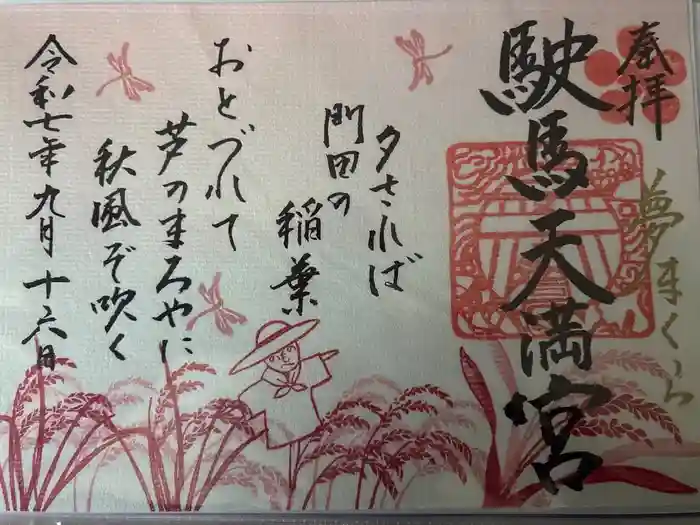 奉拝
夢まくら
駛馬天満宮
夕されば
門田の
稲葉
おとづれて
芦のまろやに
秋風ぞ吹く
令和七年九月十六日